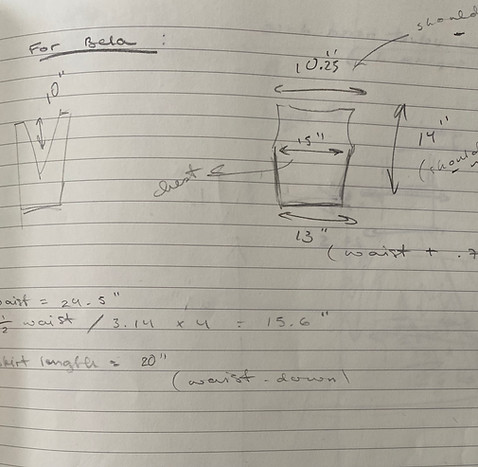 For Bela :
should
10.25"
10"
14"
(should
15"
chest
13"
(waist + .7
waist = 24.5"
1/2 waist / 3.14 x 4 = 15.6"
skirt length = 20"
(waist-down)